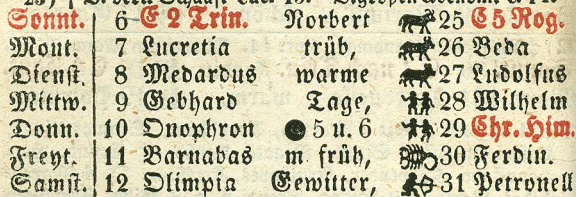 Sonnt. 6 E 2 Trin. Norbert 25 C 5 Rog.
Mont. 7 Lucretia trüb, 26 Beda
Dienst. 8 Medardus warme 27 Ludolfus
Mittw. 9 Gebhard Tage, 28 Wilhelm
Donn. 10 Onophron ● 5 u. 6 29 Chr. Him.
Freyt. 11 Barnabas m. früh, 30 Ferdin.
Samst. 12 Olimpia Gewitter, 31 Petronell